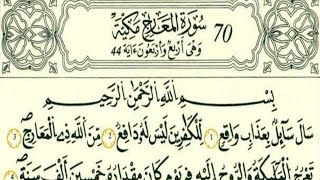 70 سورة المعارج مكية
وهي أربع وأربعون ءاية 44
بِسْمِ اللَّهِ الرَّحْمَٰنِ الرَّحِيمِ
سَأَلَ سَآئِلٌۢ بِعَذَابٍ وَاقِعٍ ١ لِّلْكَٰفِرِينَ لَيْسَ لَهُۥ دَافِعٌ ٢ مِّنَ اللَّهِ ذِي الْمَعَارِجِ ٣
تَعْرُجُ الْمَلَٰٓئِكَةُ وَالرُّوحُ إِلَيْهِ فِي يَوْمٍ كَانَ مِقْدَارُهُۥ خَمْسِينَ أَلْفَ سَنَةٍ ٤